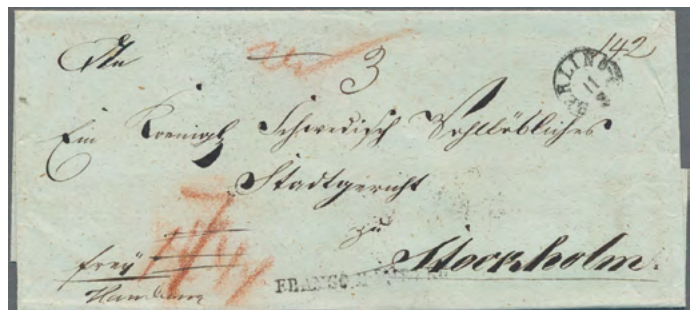 An 3 142
BERLIN
11
Ein Koenigl Schwedisch Wohllöbliches
Stadtgericht
zu
Stockholm.
frey
Hamburg
FRANCO